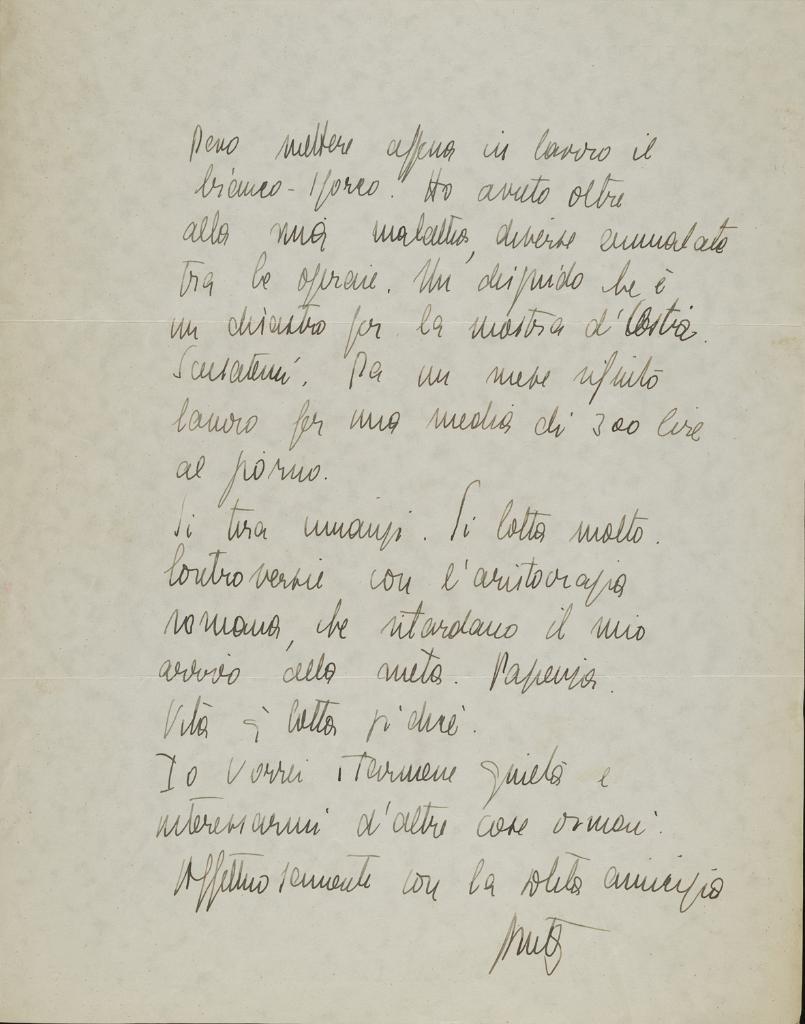 Devo mettere appena in lavoro il
bianco-sporco. Ho avuto oltre
alla mia malattia, diverse ammalate
tra le operaie. Un disguido che è
un disastro per la mostra d'Ostia.
Scusatemi. Da un mese rifiuto
lavoro per una media di 300 lire
al giorno.
Si tira innanzi. Si lotta molto.
Controversie con l'aristocrazia
romana, che ritardano il mio
arrivo alla meta. Pazienza.
Vita è lotta si dice.
Io vorrei starmene quieta e
interessarmi d'altre cose ormai.
Affettuosamente con la solita amicizia